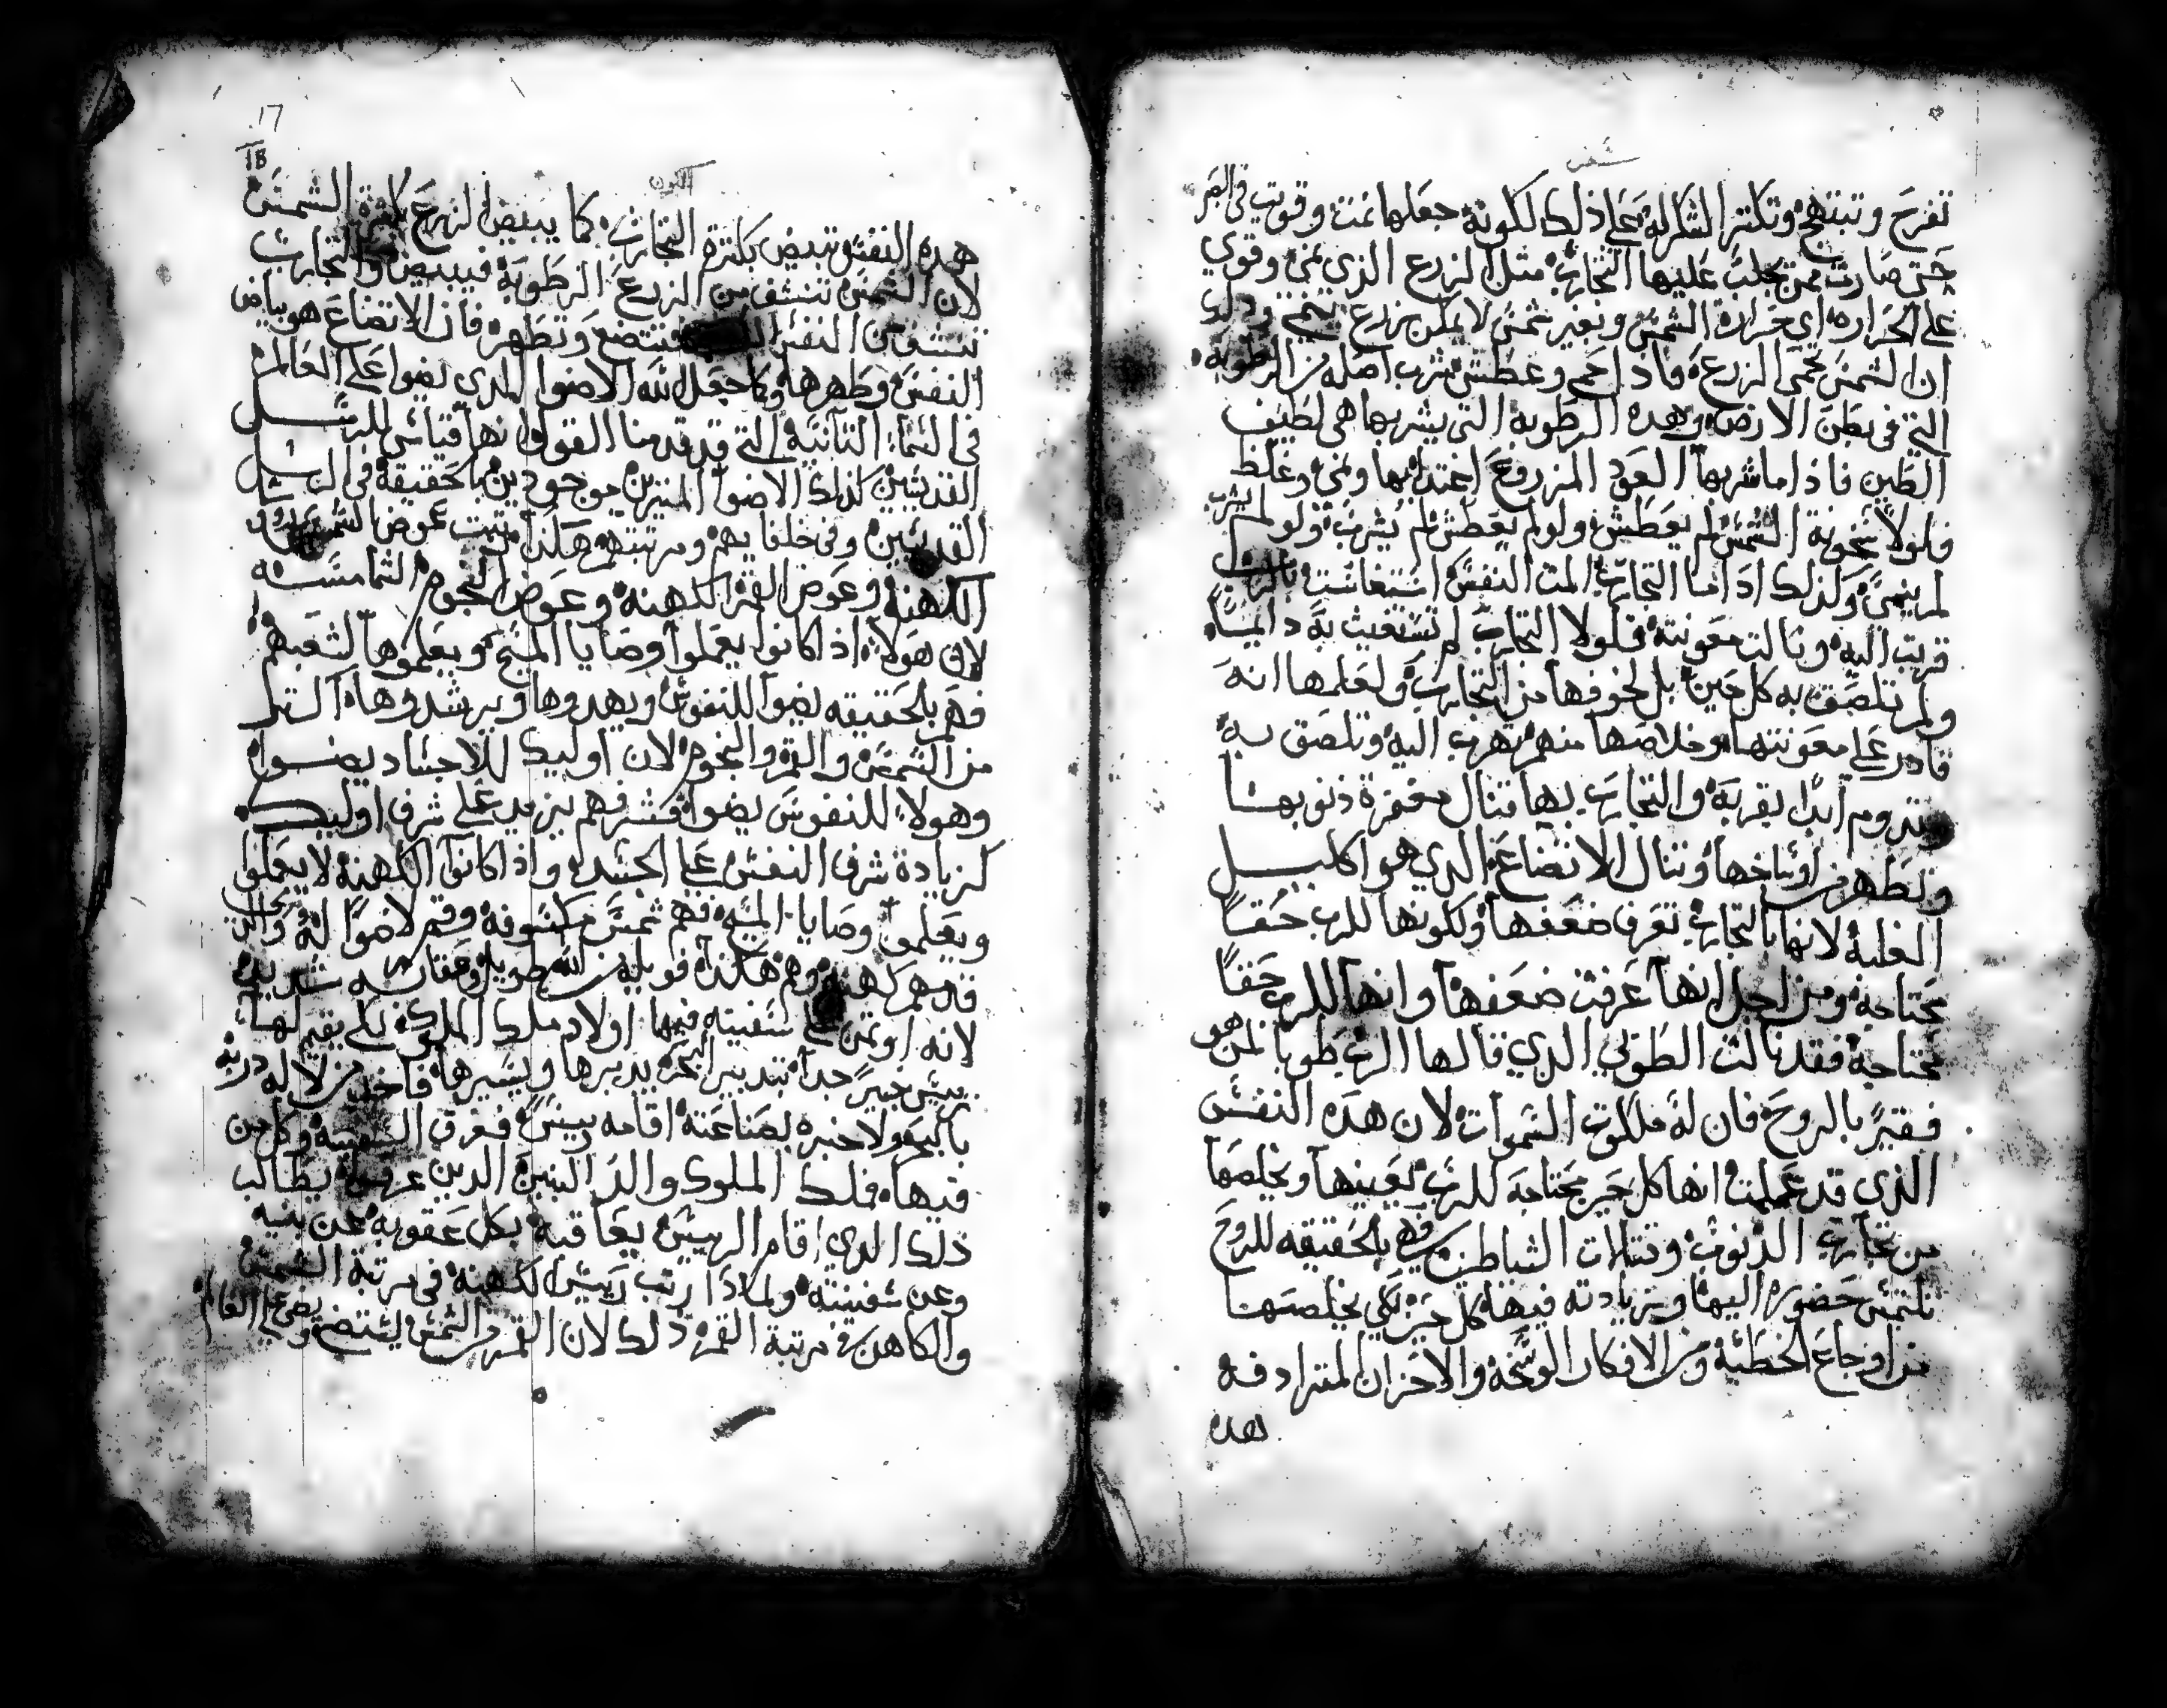 شمس
تفرح وتبتهج وتكتر الشكر له على ذلك لكونه جعلها نمت وقويت في البر
حتى صارت ممن يجلب عليها التجارب مثل الزرع الذي نمي وقوي
على الحراره اي حرارة الشمس وبغير شمس لا يمكن بزرع ينمي وذلك
ان الشمس تحمي الزرع فاذا حمي وعطش شرب اصله من الرطوبه
التي في بطن الارض وهده الرطوبه التي يشربها هي لطيف
الطين فاذا ما شربها العود المزروع اغتدا بها ونمي وغلظ
فلولا سخونة الشمس لم يعطش ولو لم يعطش لم يشرب ولو لم يشرب
لم ينمي وكذلك اذا ما التجارب المت النفس استغاثت بالرب
قربت اليه ونالت معونته فلولا التجارب لم تستغيث به دايمًا
ولم تلصق به كل حين بل لخوفها من التجارب ولعلمها انه
قادر على معونتها وخلاصها منهم تهرب اليه وتلصق به
وتدوم ابدًا بقربه والتجارب بها تنال مغفرة ذنوبها
وتطهر من اوساخها وتنال الاتضاع الدي هو اكليل
الغلبه لانها بالتجارب تعرف ضعفها ولكونها للرب حقًا
محتاجه ومن اجل انها عرفت ضعفها وانها للرب حقًا
محتاجه فقد نالت الطوبي الدي قالها الرب طوبا لمن هو
فقيرً بالروح فان له ملكوت السموات لان هده النفس
الذي قد علمت انها كل حين محتاجه للرب ليعينها ويخلصها
من تجارب الذنوب وقتالات الشياطين فهي بالحقيقه للروح
تلتمس حضوره اليها وزيادته فيها كل حين لكي يخلصها
من اوجاع الخطيه ومن الافكار الوسخه والاحزان المترادفه
هده
١٦
هده النفس تبيض بكترة التجارب كما يبيض الزرع بكثرة الشمس
لان الشمس تنشف من الزرع الرطوبه فيبيض والتجارب
تنشف من النفس فتتضع وتطهر فان الاتضاع هو بياض
النفس وطهرها وكما جعل الله الاضوا الدي يضوا على العالم
في السما التانيه التي قد قدمنا القول انها قياس للرسل
القديسين كذلك الاضوا المنيرين موجودين بالحقيقه في الرسل
القديسين وفي خلفايهم ومرتبتهم هكذا تثبت عوض الشمس
الكهنه وعوض القمر الكهنه وعوض النجوم الشمامسه
لان هولاء اذا كانوا يعملوا وصايا المسيح ويعلموها لشعبهم
فهم بالحقيقه يضوا للنفوس ويهدوها ويرشدوها اكتر
من الشمس والقمر والنجوم لان اوليك للاجساد يضوا
وهولاء للنفوس يضوا فشرفهم يزيد على شرف اوليك
كزيادة شرف النفس على الجسد واذا كانوا الكهنه لا يعملوا
ويعلموا وصايا المسيح فهم شمس مكسوفه وقمر لا ضوا له
قدمهم كهنه وهم هكذا فويله من الله طويل وعقابه شديد
لانه اوتمن على سفينه فيها اولاد ملك الملوك لكي يقيم لها
رييس خبيرً جدًا بتدبير البحر يدبرها ويسيرها فاخذ من لا له دربه
بالبحر ولا خبره بصناعته اقامه رييس فغرق السفينه وكل من
فيها فملك الملوك والد البنين الدين غرقوا يطالب
ذلك الدي اقام الرييس يعاقبه بكل عقوبه عن بنيه
وعن سفينته ولماذا رتب رييس الكهنه في مرتبة الشمس
والكاهن في مرتبة القمر ذلك لان القمر من الشمس يستضي ويضي على العالم